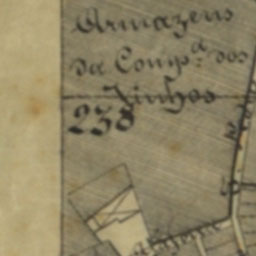 Armazens
da Comp.ª dos
Vinhos
238